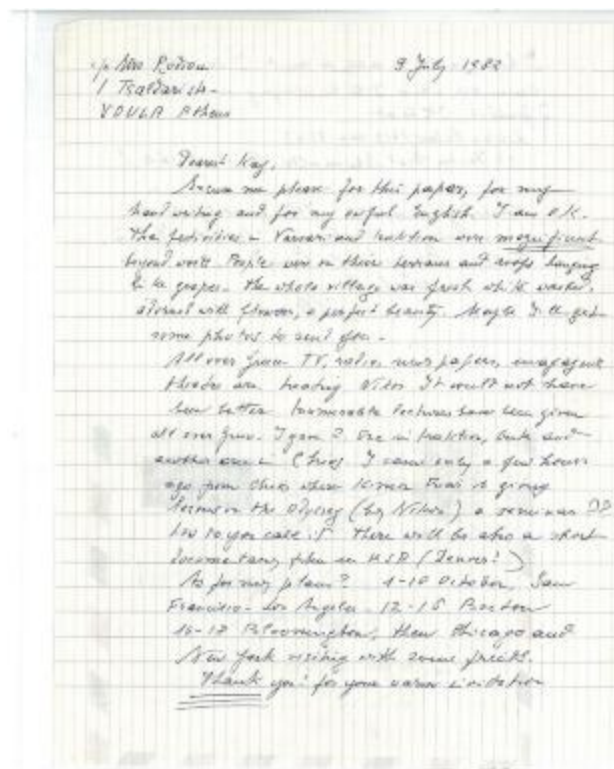 9 July 1983
1 Tsaldari str.
VOULA Athens
Dearest Kay,
Excuse me please for this paper, for my
hand writing and for my awful English. I am O.K.
The festivities in Varvari and Iraklion were magnificent
beyond words People were on their terraces and roofs hanging
like grapes. The whole village was fresh white washed,
adorned with flowers, a perfect beauty. Maybe I'll get
some photos to send you.
All over Greece TV, radio, news papers, magazines
theater are treating Nikos It could not have
been better Innumerable lectures have been given
all over Greece. I gave 2 One in Iraklion, Crete and
another one in Chios I came only a few hours
ago from Chios where Kimon Friar is giving
lessons on the Odyssey (by Nikos) a seminar ??
how do you call it There will be also a short
documentary film in USA (Denver!)
As for my plans? 1-10 October, San
Francisco - Los Angeles. 12-15 Boston
16-18 Bloomington, then Chicago and
New York visiting with some friends.
Thank you! for your warm invitation